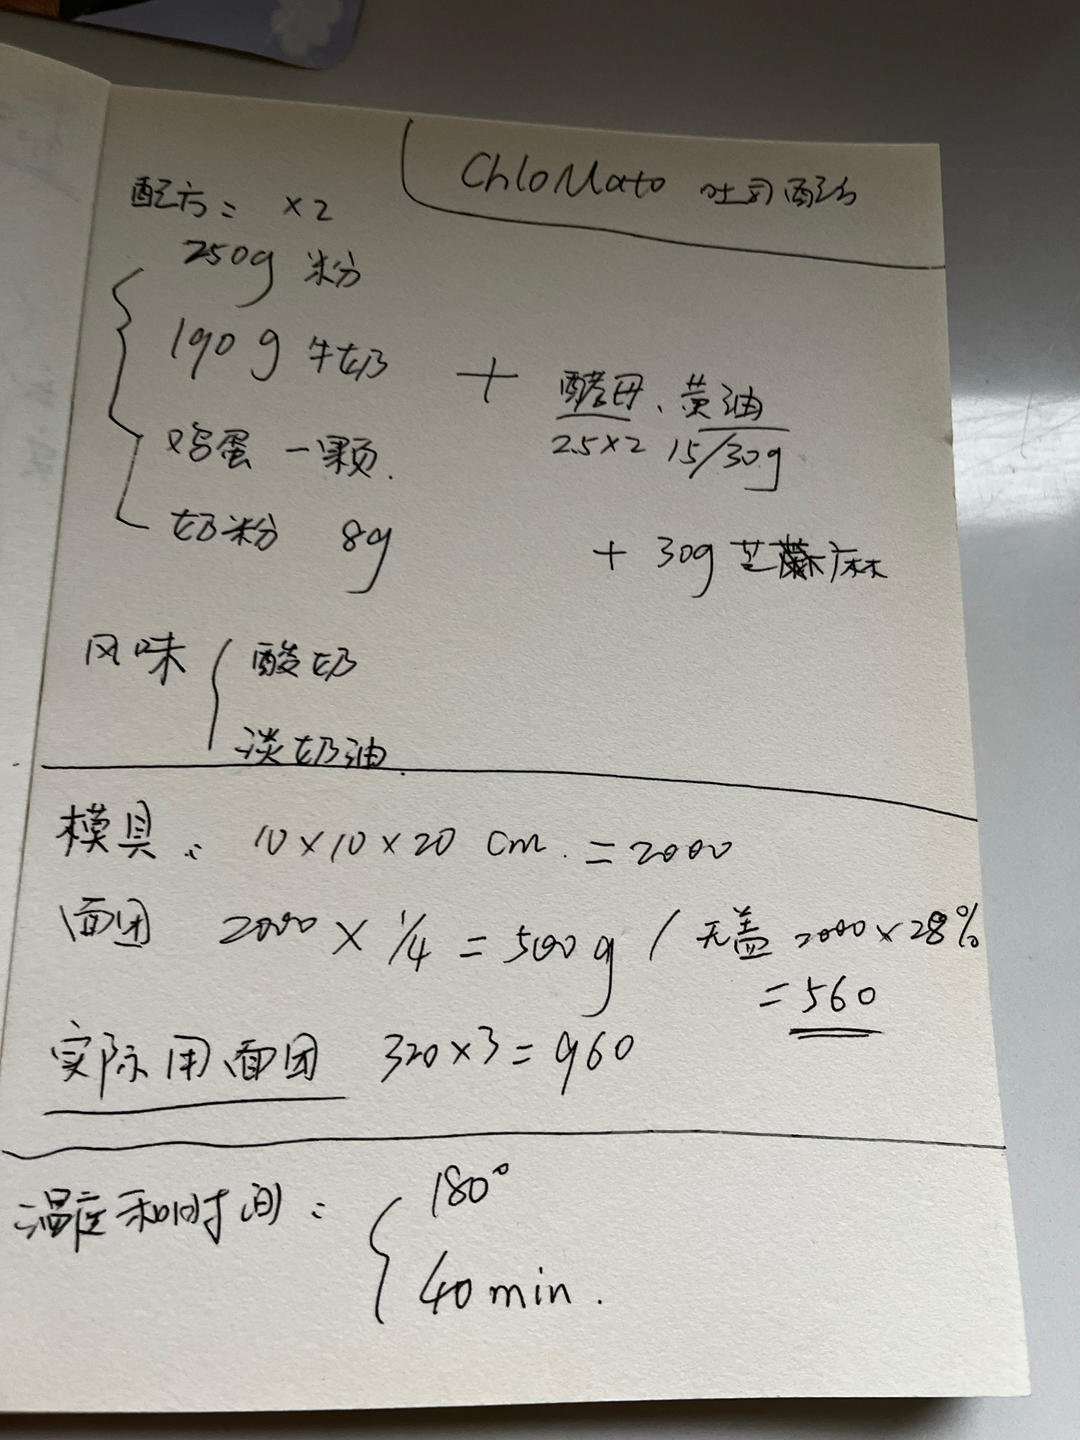 ChloMato 吐司配方
配方： ×2
250g 粉
190g 牛奶
鸡蛋 一颗.
奶粉 8g
+ 酵母、黄油
2.5×2 15/30g
+ 30g 芝麻
风味 { 酸奶
淡奶油.
模具： 10×10×20 cm. =2000
面团 2000 × 1/4 = 500g / 无盖 2000×28%
=560
实际用面团 320×3=960
温度和时间： { 180°
40min.